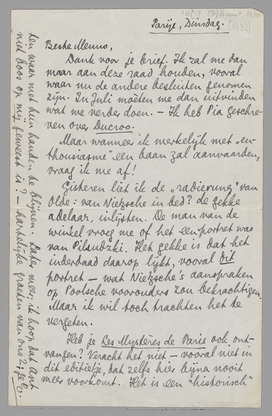 Parijs, Dinsdag.
Beste Menno,
Dank voor je brief. Ik zal me dan
maar aan deze raad houden, vooral
waar nu de andere besluiten genomen
zijn. In Juli moeten we dan uitvinden
wat me verder doen. – Ik heb Pia geschre-
ven over Ducroo.
Maar wanneer ik werkelijk met „en-
thousiasme" een baan zal aanvaarden,
vraag ik me af!
Gisteren liet ik de „radeering" van
Olde: van Nietzsche in bed? de gekke
adelaar, inlijsten. De man van de
winkel vroeg me of het een portret was
van Pilsudski. Het gekke is dat het
inderdaad daarop lijkt, vooral dit
portret – wat Nietzsche's aanspraken
op Poolsche voorouders zou bekrachtigen.
Maar ik wil toch trachten het te
vergeten.
Heb je Les Mystères de Paris ook ont-
vangen? Veracht het niet – vooral niet in
dit editietje, dat zelfs hier bijna nooit
meer voorkomt. Het is een "historisch"
niet boos op mij geweest is? – hartelijke groeten van ons;